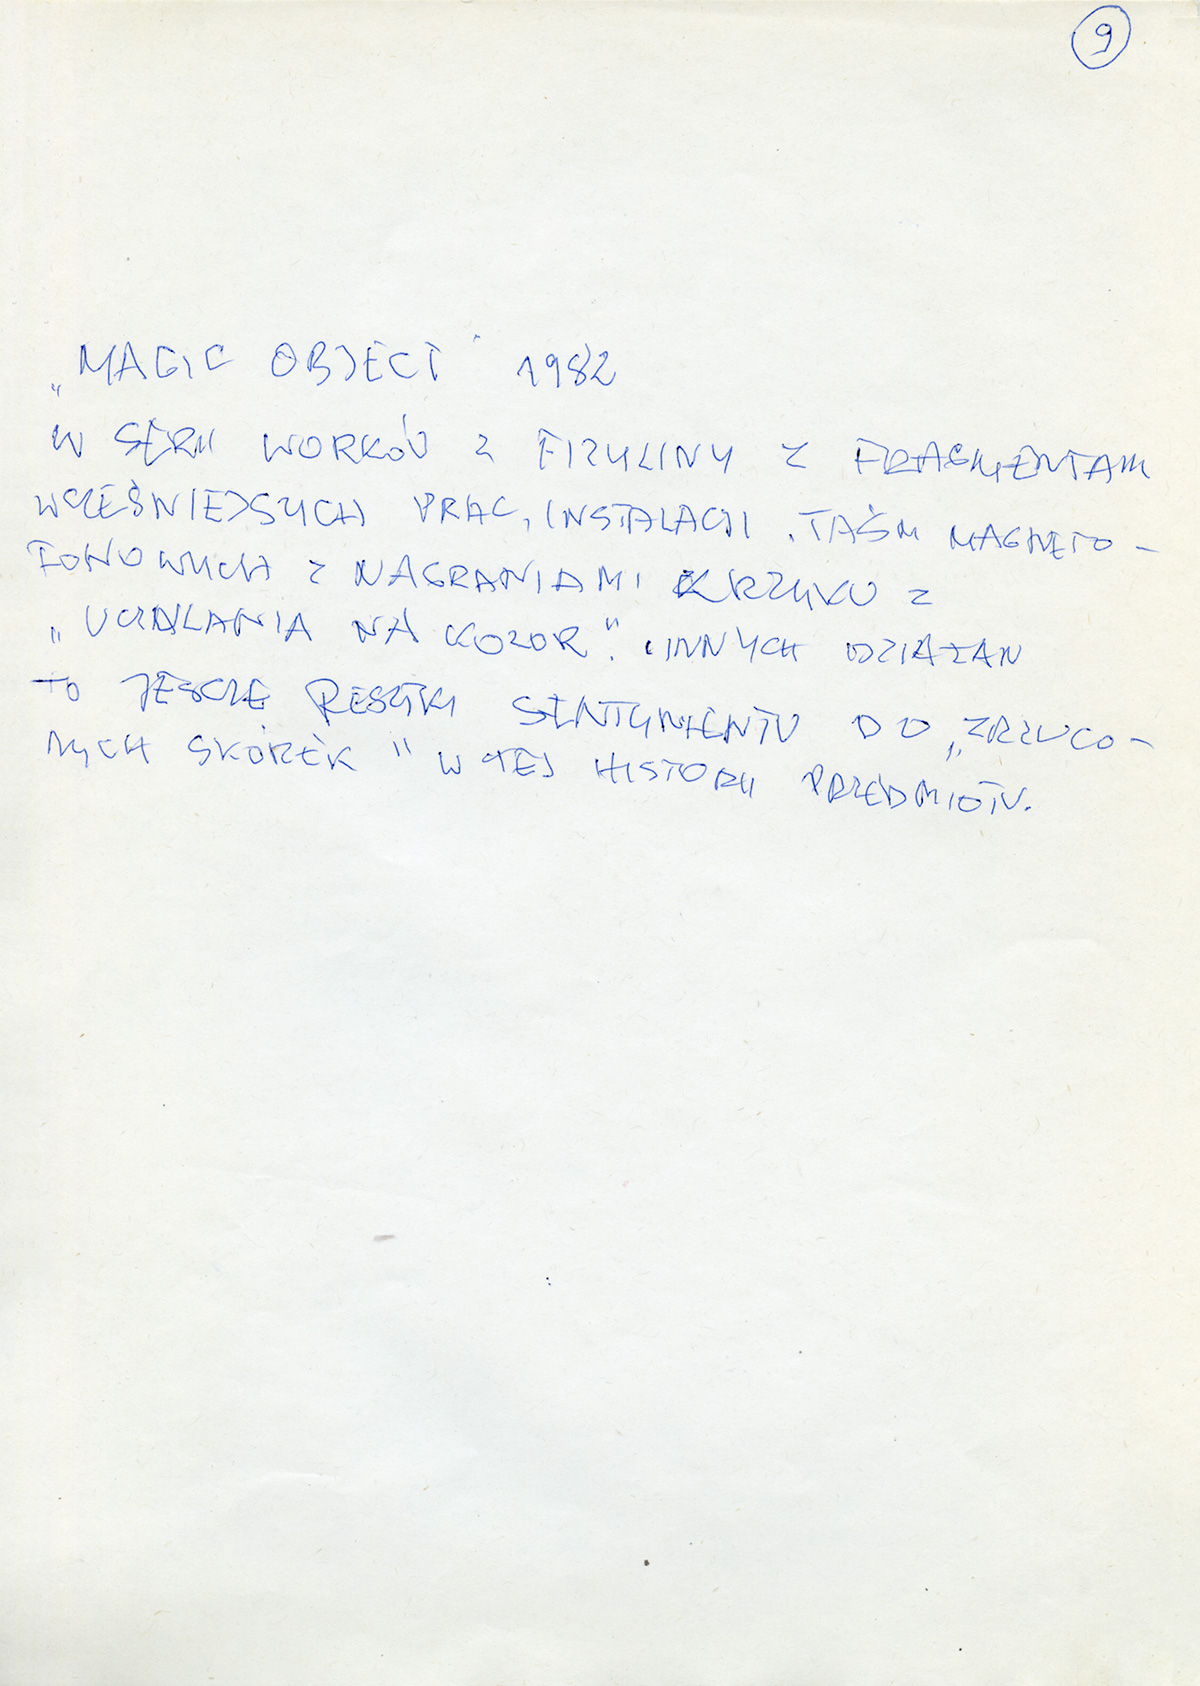 9
„MAGIC OBJECT" 1982
W SERII WORKÓW Z FIZYLINY Z FRAGMENTAMI
WCZEŚNIEJSZYCH PRAC, INSTALACJI, TAŚM MAGNETO-
FONOWYCH Z NAGRANIAMI KRZYKU Z
„UCZULANIA NA KOLOR". I INNYCH DZIAŁAŃ
TO JESZCZE RESZTKI SENTYMENTU DO „ZRZUCO-
NYCH SKÓREK" W TEJ HISTORII PRZEDMIOTU.